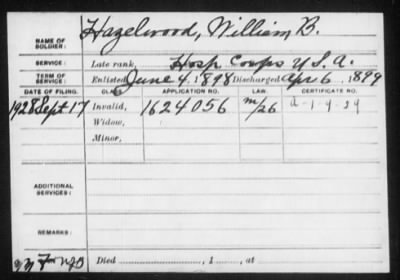 NAME OF SOLDIER: Hazelwood, William B.
SERVICE: Late rank, Hosp Corps U.S.A.
TERM OF SERVICE: Enlisted June 4, 1898 Discharged Apr 6, 1899
DATE OF FILING. CLASS. APPLICATION NO. LAW. CERTIFICATE NO.
1928 Sept 17 Invalid, 1624056 m/26 a-1-9-29
Widow,
Minor,
ADDITIONAL SERVICES:
REMARKS:
Died , 1 , at